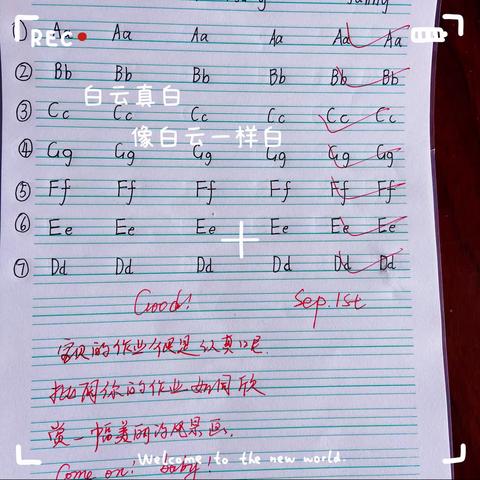 sunny
REC
① Aa Aa Aa Aa Aa Aa
② Bb Bb Bb Bb Bb Bb
白云真白
③ Cc Cc Cc Cc Cc Cc
像白云一样白
④ Gg Gg Gg Gg Gg Gg
⑤ Ff Ff Ff Ff Ff Ff
⑥ Ee Ee Ee Ee Ee Ee
⑦ Dd Dd Dd Dd Dd Dd
Good! Sep.1st
宝贝的作业很是认真呢.
批阅你的作业如同欣
赏一幅美丽的风景画.
Come on! baby!
Welcome to the new world.